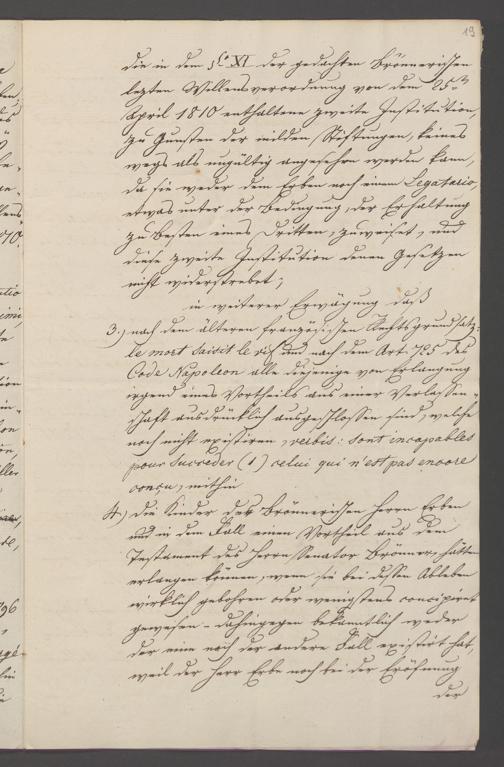 19
die in dem §fo XI der gedachten Brönnerischen
lezten Willensverordnung von dem 25n
April 1810 enthaltene zweite Institution,
zu Gunsten der milden Stiftungen, keines
wegs als ungültig angesehen werden kann,
da sie weder dem Erben noch einem Legatario,
etwas unter der Bedingung, der Erhaltung
zu Besten eines Dritten, zuweiset, und
diese zweite Institution denen Gesetzen
nicht widerstrebet;
in weiterer Erwägung daß
3.) nach dem älteren französischen Rechtsgrundsatz:
le mort saisit le vif und nach dem Art. 725 des
Code Napoleon alle diejenige von Erlangung
irgend eines Vortheils aus einer Verlassen-
schaft ausdrücklich ausgeschlossen sind, welche
noch nicht existiren, verbis: sont incapables
pour succeder (1) celui qui n'est pas encore
conçu, mithin
4.) die Kinder des Brönnerischen Herrn Erben
nur in dem Fall einen Vortheil aus dem
Testament des Herrn Senator Brönner, hätten
erlangen können, wenn sie bei dessen Ableben
wirklich gebohren oder wenigstens concipiret
gewesen - dahingegen bekanntlich weder
der eine noch der andere Fall existirt hat,
weil der Herr Erbe noch bei der Eröfnung
der